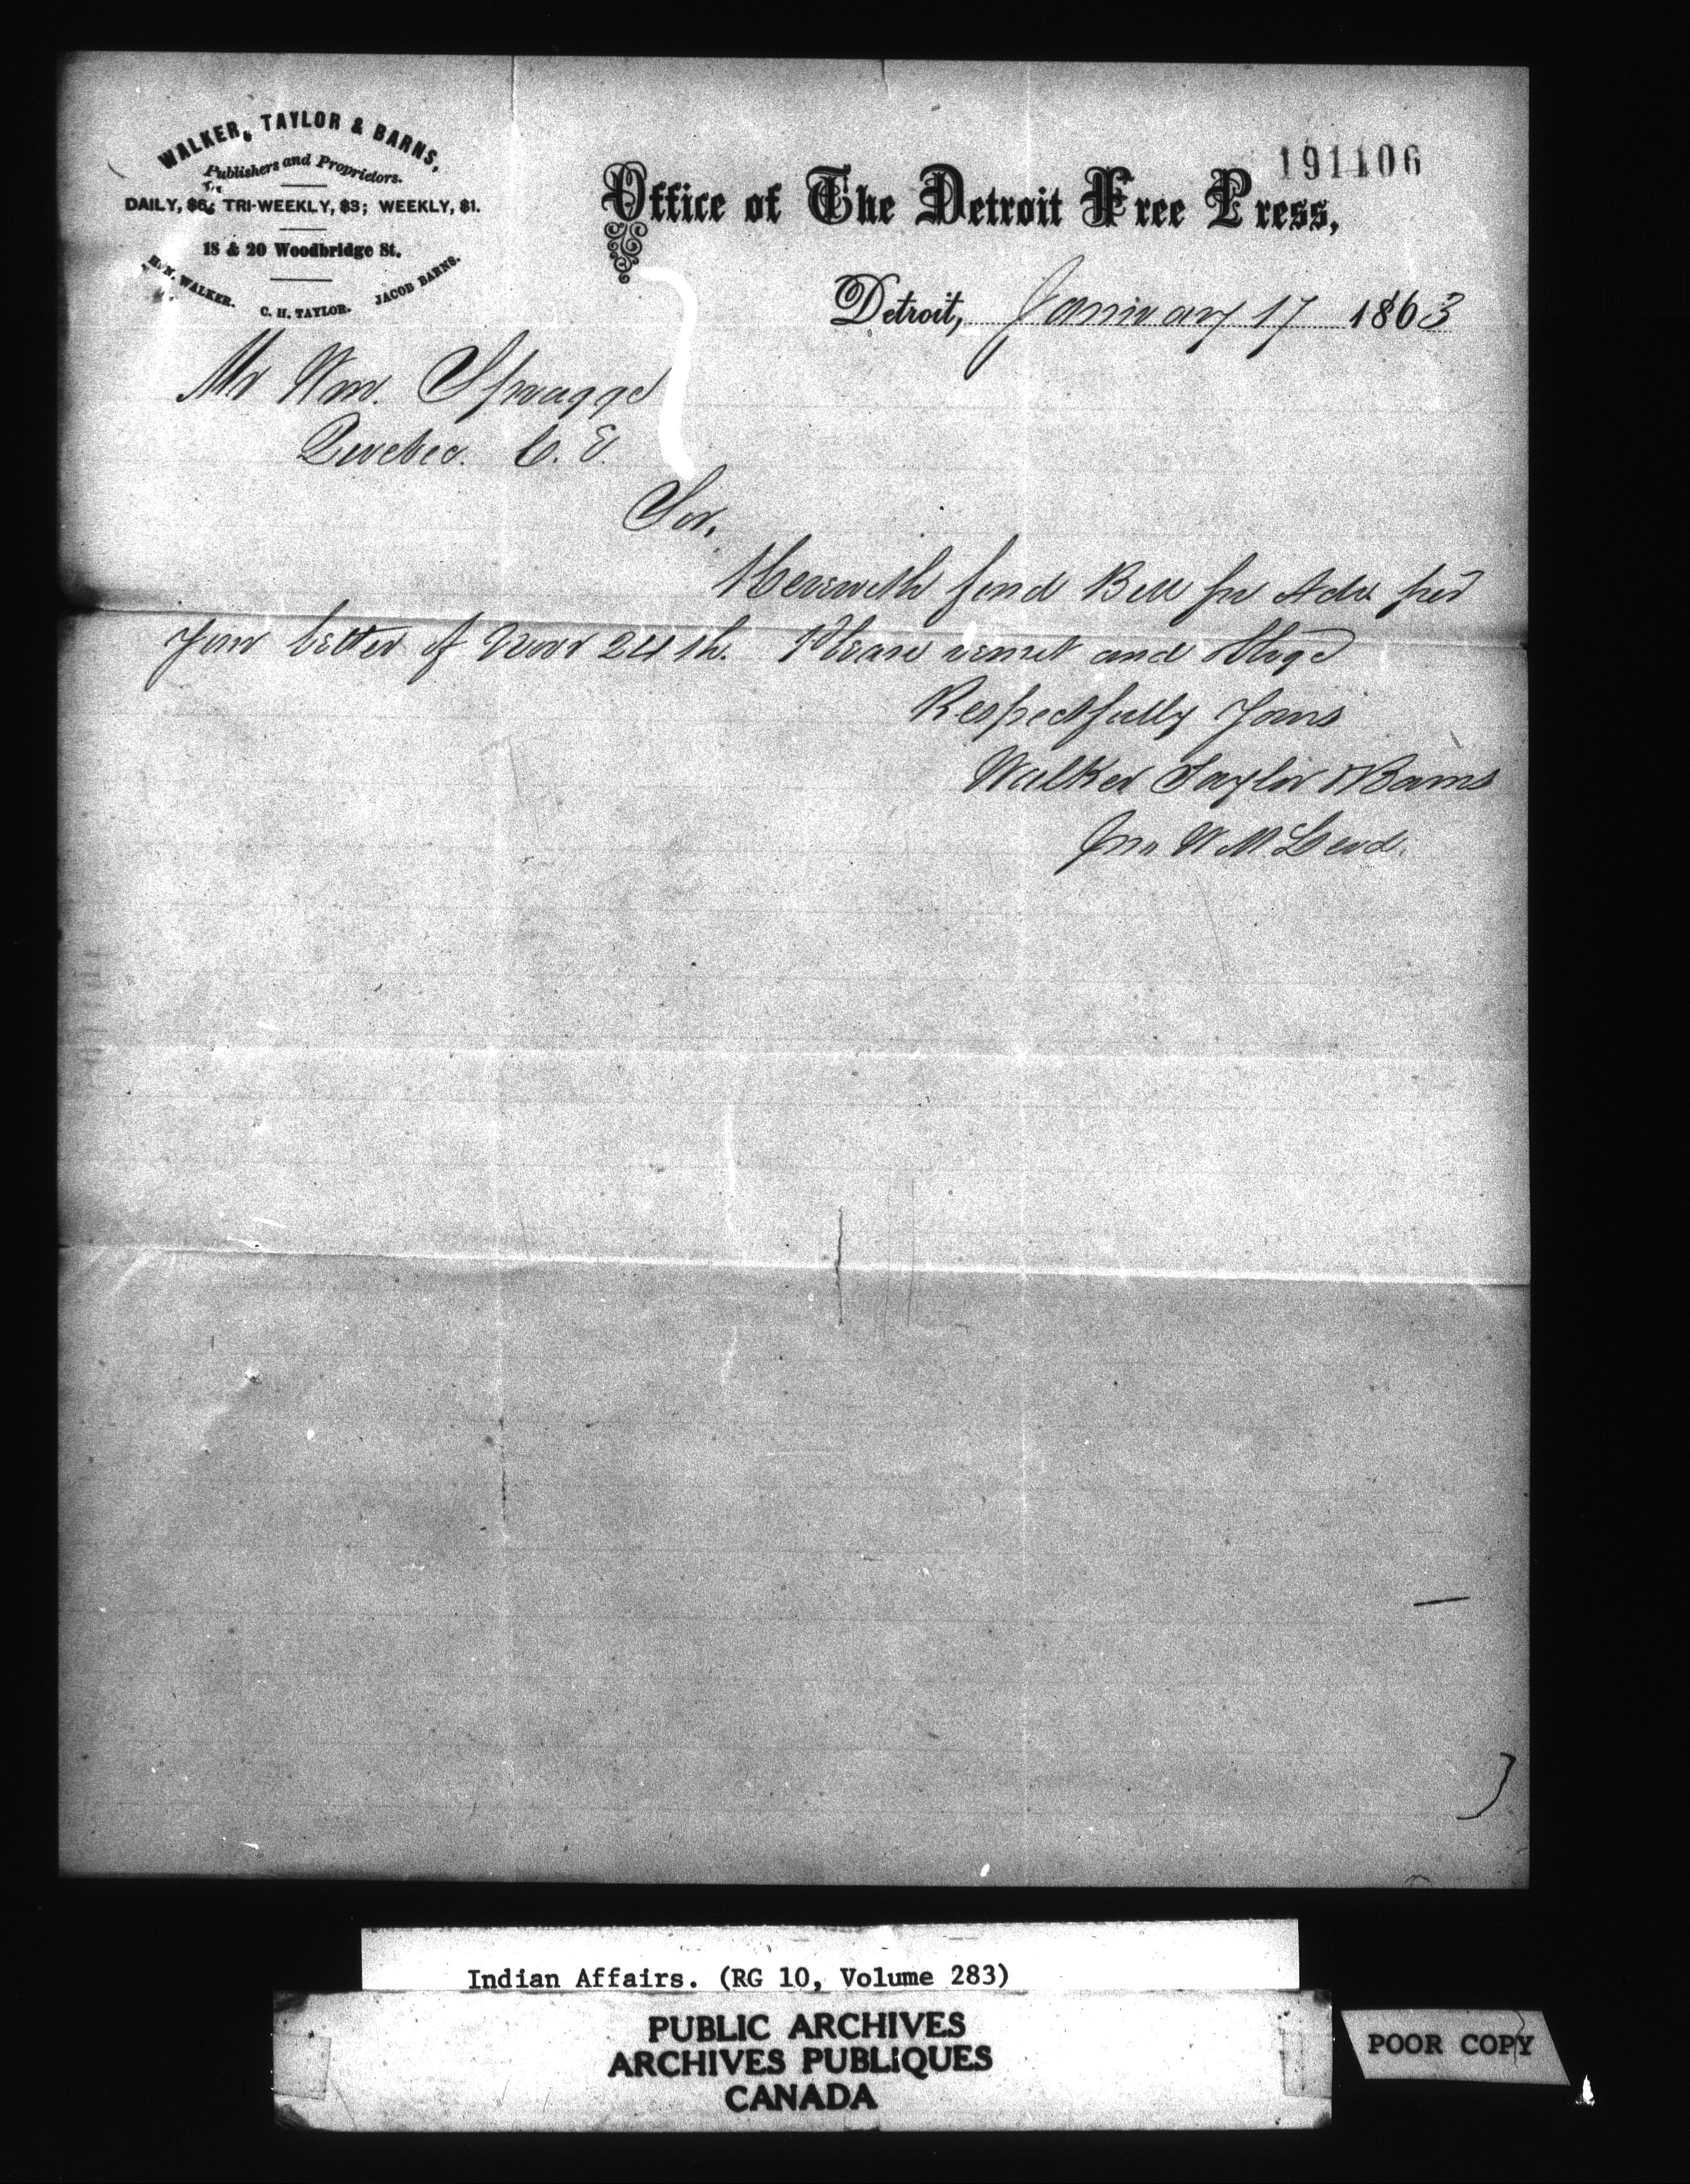 WALKER, TAYLOR & BARNS,
Publishers and Proprietors.
DAILY, $6; TRI-WEEKLY, $3; WEEKLY, $1.
18 & 20 Woodbridge St.
H. N. WALKER. C. H. TAYLOR. JACOB BARNS.
191106
Office of The Detroit Free Press,
Detroit, January 17 1863
Mr Wm. Spragge
Quebec. C. E.
Sir,
Herewith find Bill for Adv. per
your letter of Novr 24th. Please remit and Oblige
Respectfully Yours
Walker Taylor & Barns
Jno W McLeod.
Indian Affairs. (RG 10, Volume 283)
PUBLIC ARCHIVES
ARCHIVES PUBLIQUES
CANADA
POOR COPY